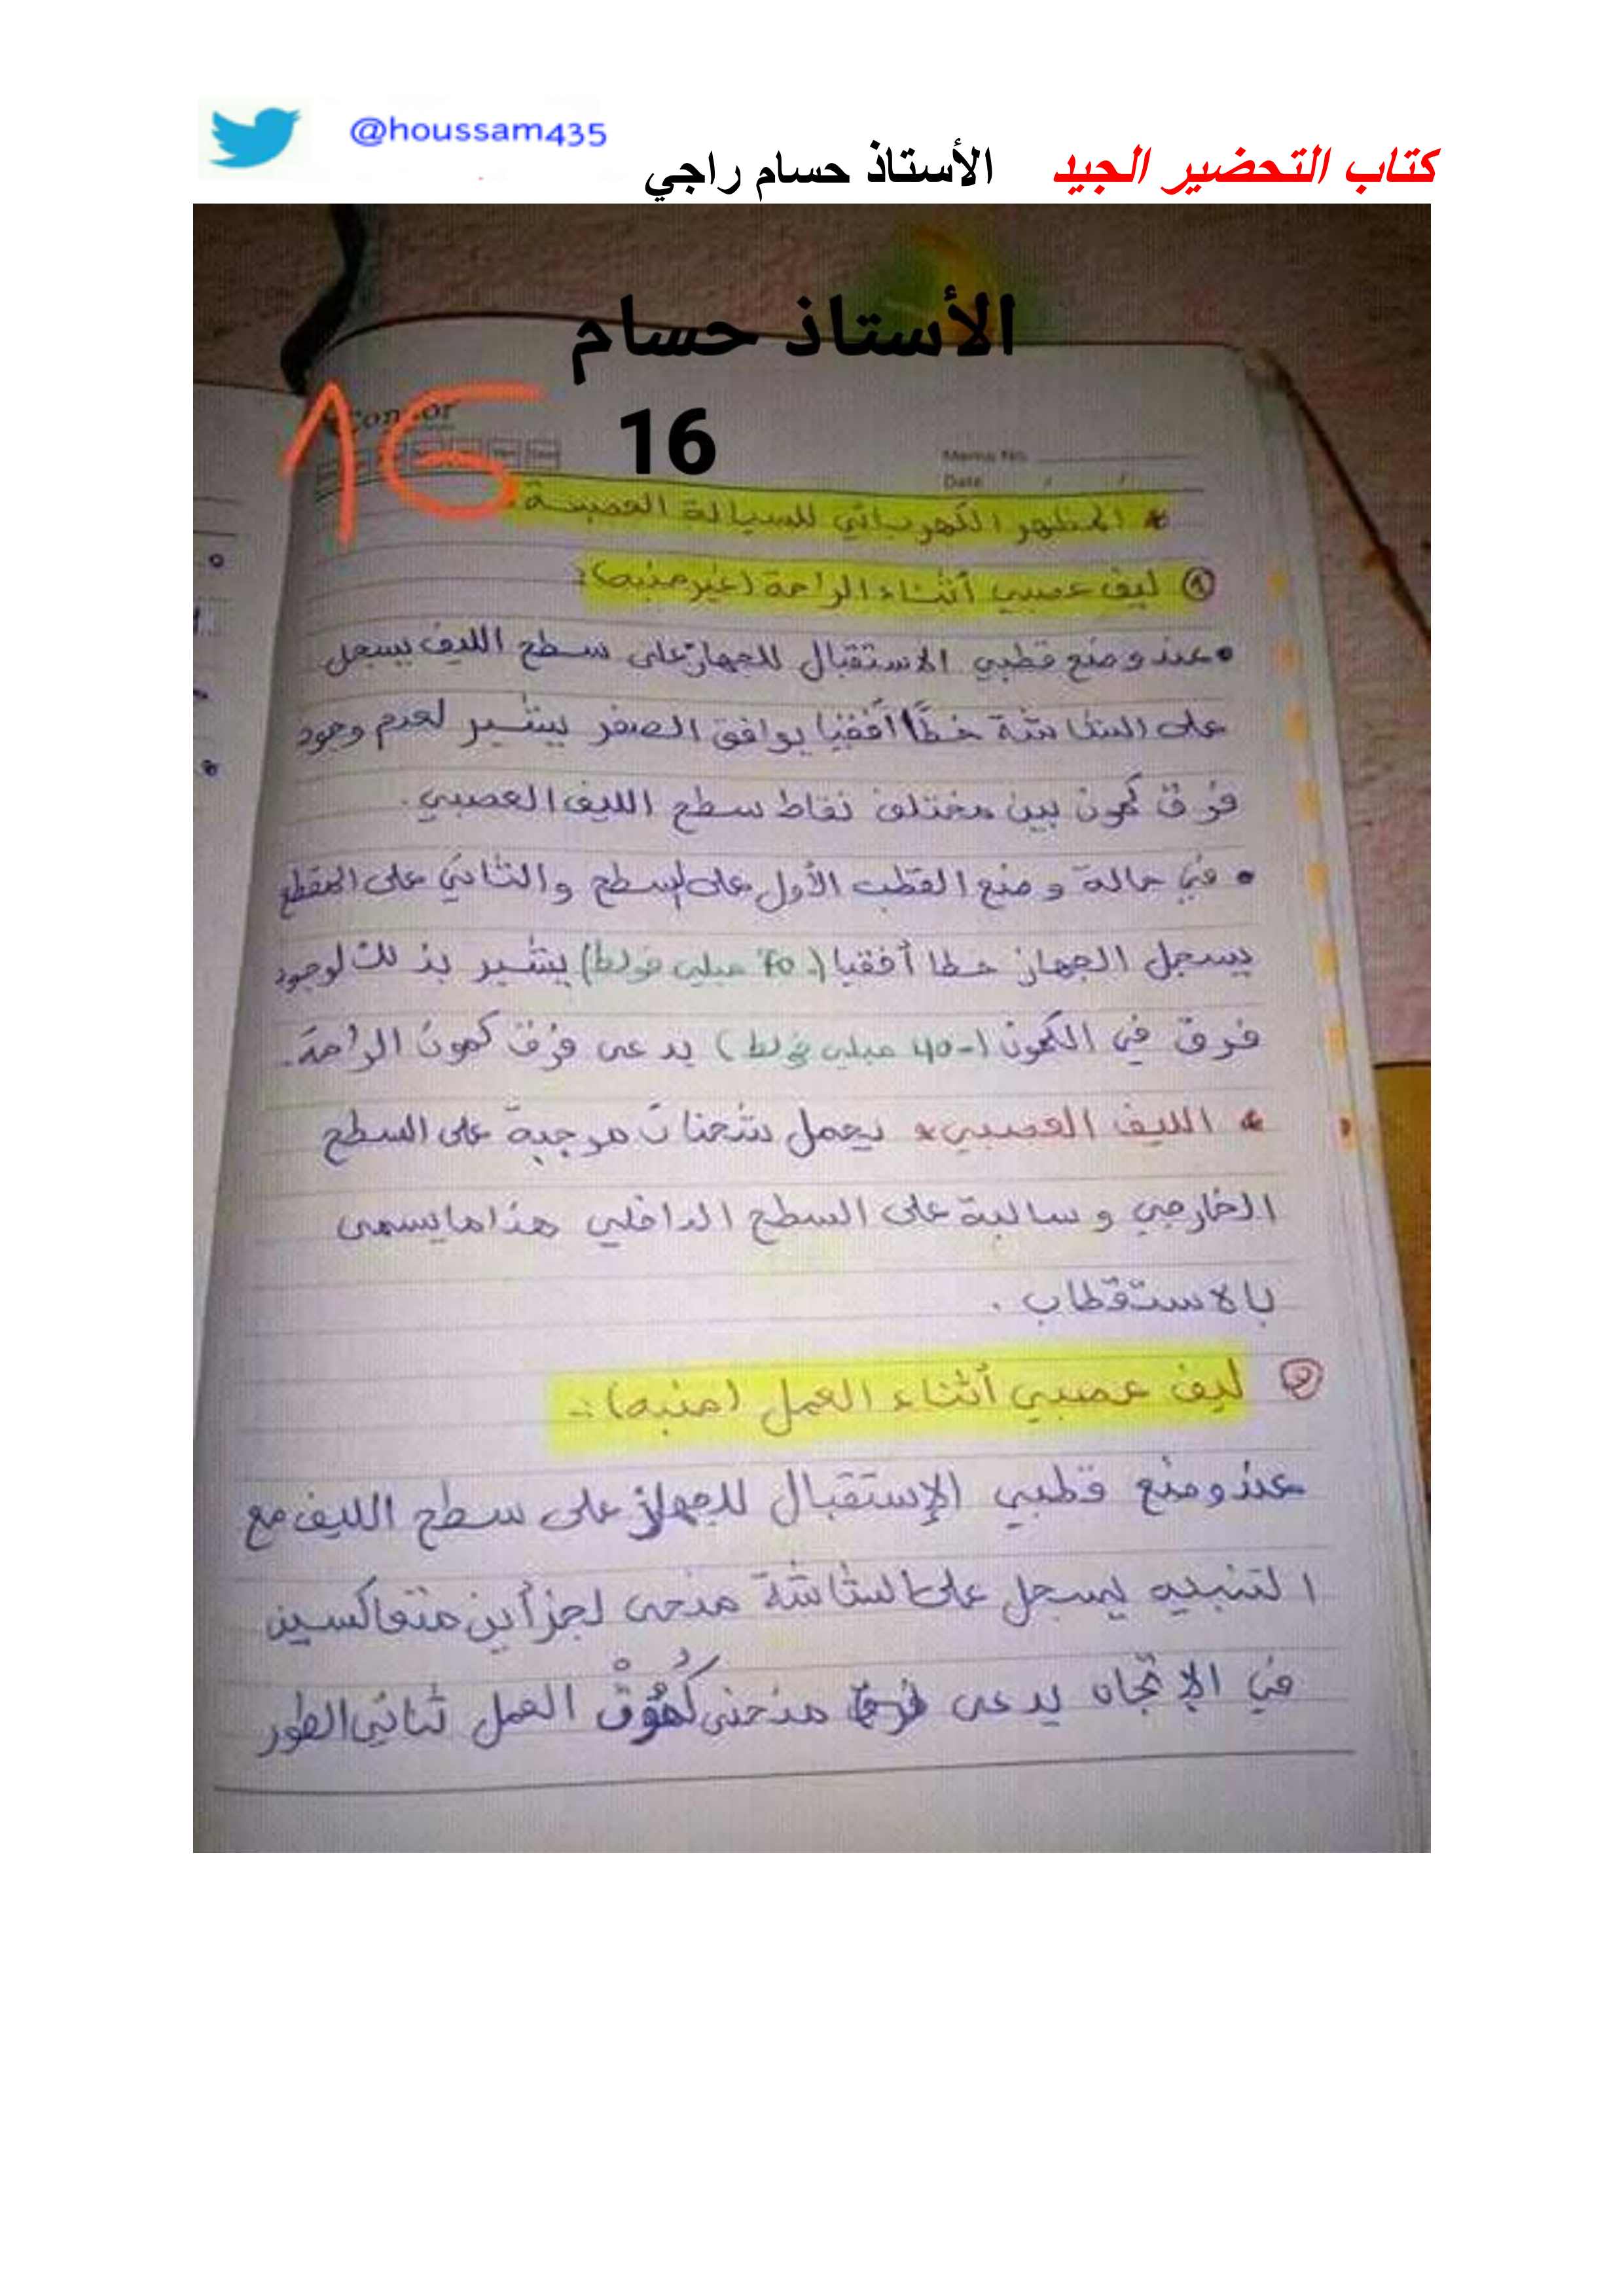 @houssam435
كتاب التحضير الجيد الأستاذ حسام راجي
الأستاذ حسام
16
16
Memo No.
Date / /
* المظهر الكهربائي للسيالة العصبية.
① ليف عصبي أثناء الراحة (غير منبه):
• عند وضع قطبي الاستقبال للجهاز على سطح الليف يسجل
على الشاشة خطًا أفقيا يوافق الصفر يشير لعدم وجود
فرق كمون بين مختلف نقاط سطح الليف العصبي.
• في حالة وضع القطب الأول على السطح والثاني على المقطع
يسجل الجهاز خطا أفقيا (-70 ميلي فولط) يشير بذلك لوجود
فرق في الكمون (-40 ميلي فولط) يدعى فرق كمون الراحة.
* الليف العصبي * يحمل شحنات موجبة على السطح
الخارجي وسالبة على السطح الداخلي هذا ما يسمى
بالاستقطاب.
② ليف عصبي أثناء العمل (منبه):-
عند وضع قطبي الإستقبال للجهاز على سطح الليف مع
التنبيه يسجل على الشاشة منحى لجزأين متعاكسين
في الإتجاه يدعى منحنى كمون العمل ثنائي الطور